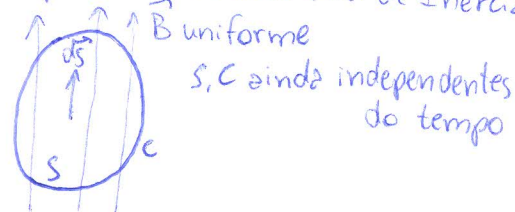 de Inercia
B⃗ uniforme
dS⃗
S, C ainda independentes
do tempo
S
C